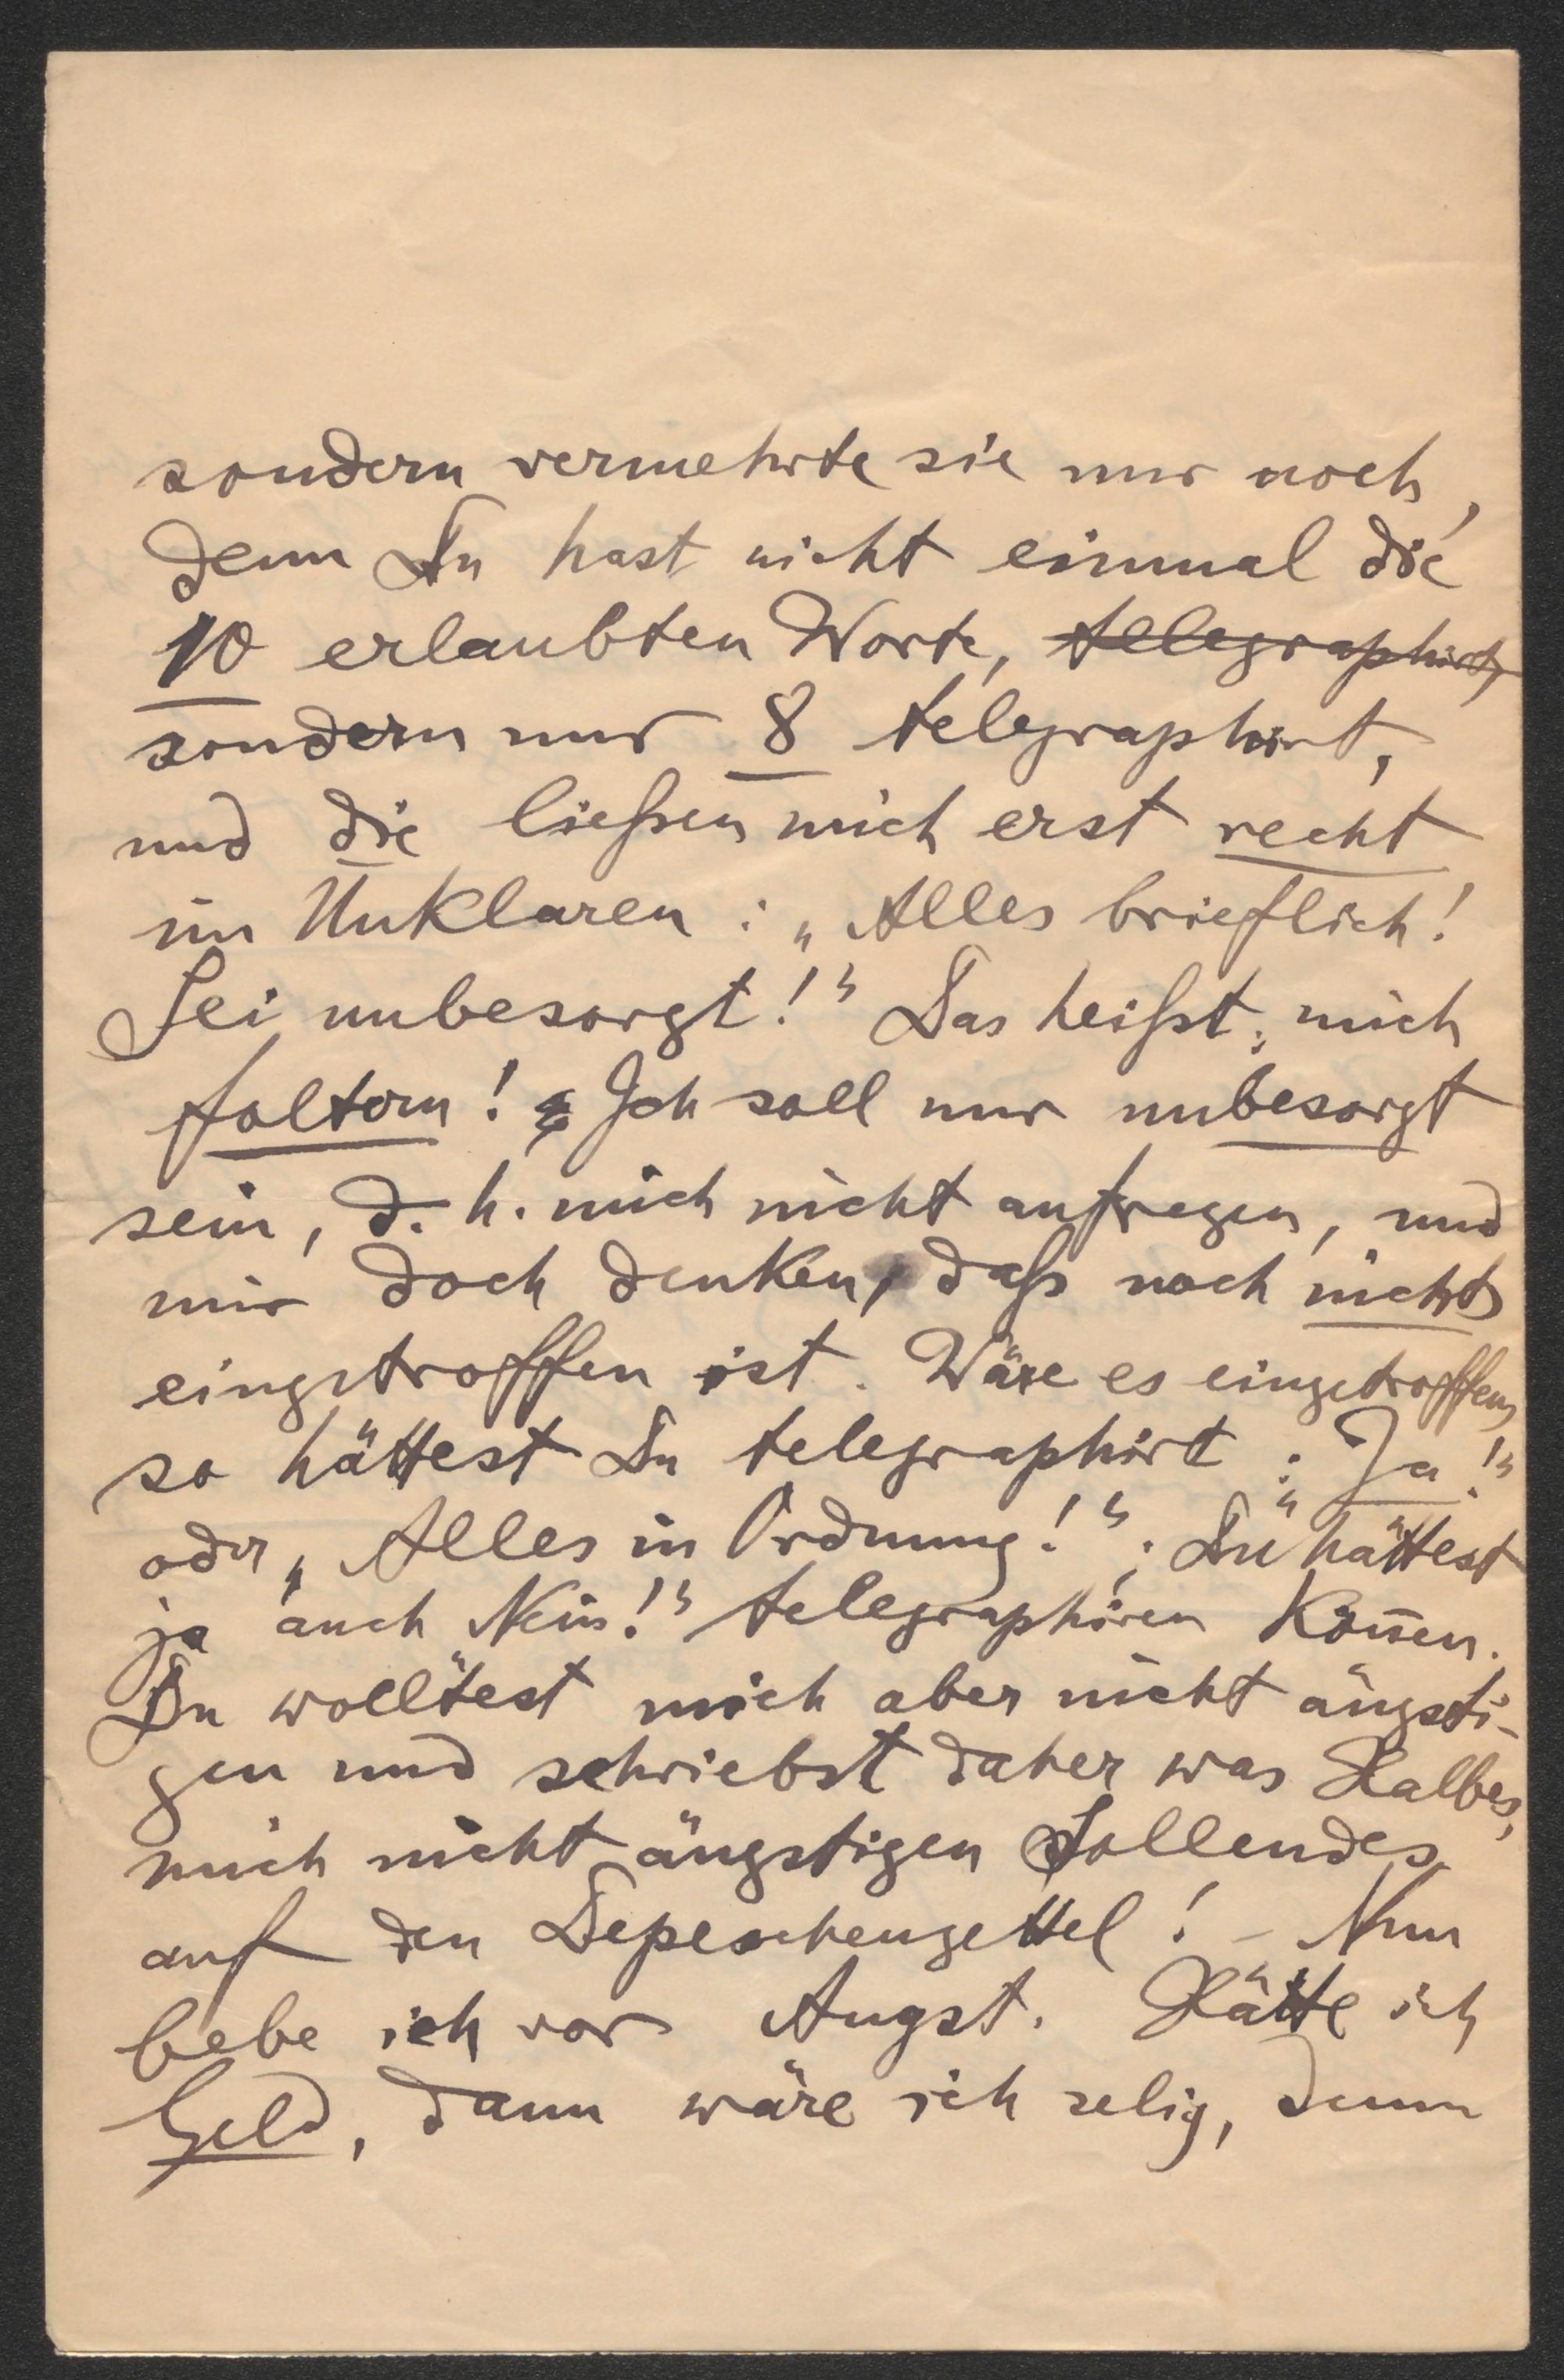 sondern vermehrte sie nur noch,
denn Du hast nicht einmal die
10 erlaubten Worte, telegraphirt,
sondern nur 8 telegraphirt,
und die ließen mich erst recht
im Unklaren: „Alles brieflich!
Sei unbesorgt!“ Das heißt: mich
foltern! Ich soll nur unbesorgt
sein, d. h. mich nicht aufregen, und
mir doch denken, daß noch nichts
eingetroffen ist. Wäre es eingetroffen,
so hättest Du telegraphirt: „Ja!“
oder „Alles in Ordnung!“; Du hättest
ja auch „Nein!“ telegraphiren können.
Du wolltest mich aber nicht ängsti-
gen und schriebst daher was Halbes,
mich nicht ängstigen Sollendes
auf den Depeschenzettel! – Nun
bebe ich vor Angst. Hätte ich
Geld, dann wäre ich selig, denn